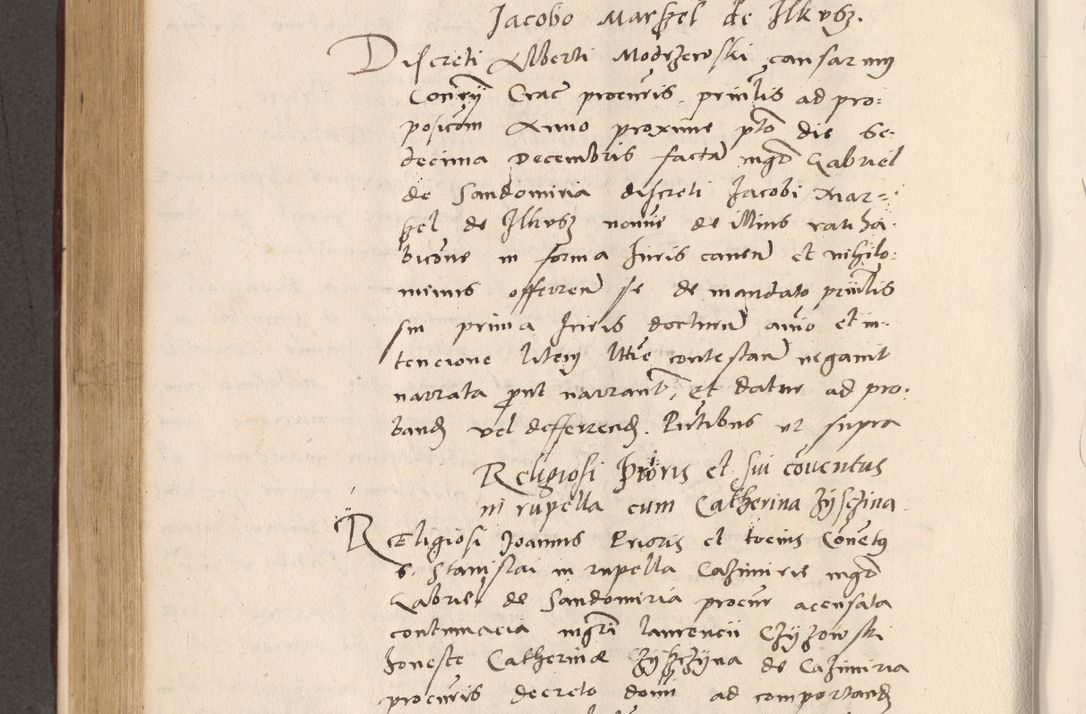 Jacobo Marszel de Ilkusz.
Discreti Alberti Modrzewski causarum
Consrÿ Crac procuris, prntis ad pro-
posicom Anno proxime pto die se-
decima Decembris factam mgro Gabriel
de Sandomiria discreti Jacobi Mar-
szel de Ilkusz nomine de illius ratiha-
bicone in forma Juris caven et nihilo-
minus offerren se de mandato prntis
sui prima Juris docturum animo et in-
tencione litem lttie contestan negavit
narrata prout narrant, et datur ad pro-
band vel defferend. Pntibus ut supra
Religiosi Prioris et sui coventus
in rupella cum Catherina Zyszina.
Religiosi Joannis Prioris et tocius Covetus
S. Stanislai in rupella Cazimirie mgro
Gabriel de Sandomiria procur acusata
contumacia mgri laurencii Czyzowski
honeste Catherinæ Zyszyna de Cazimiria
procuris decreto domi ad comportand